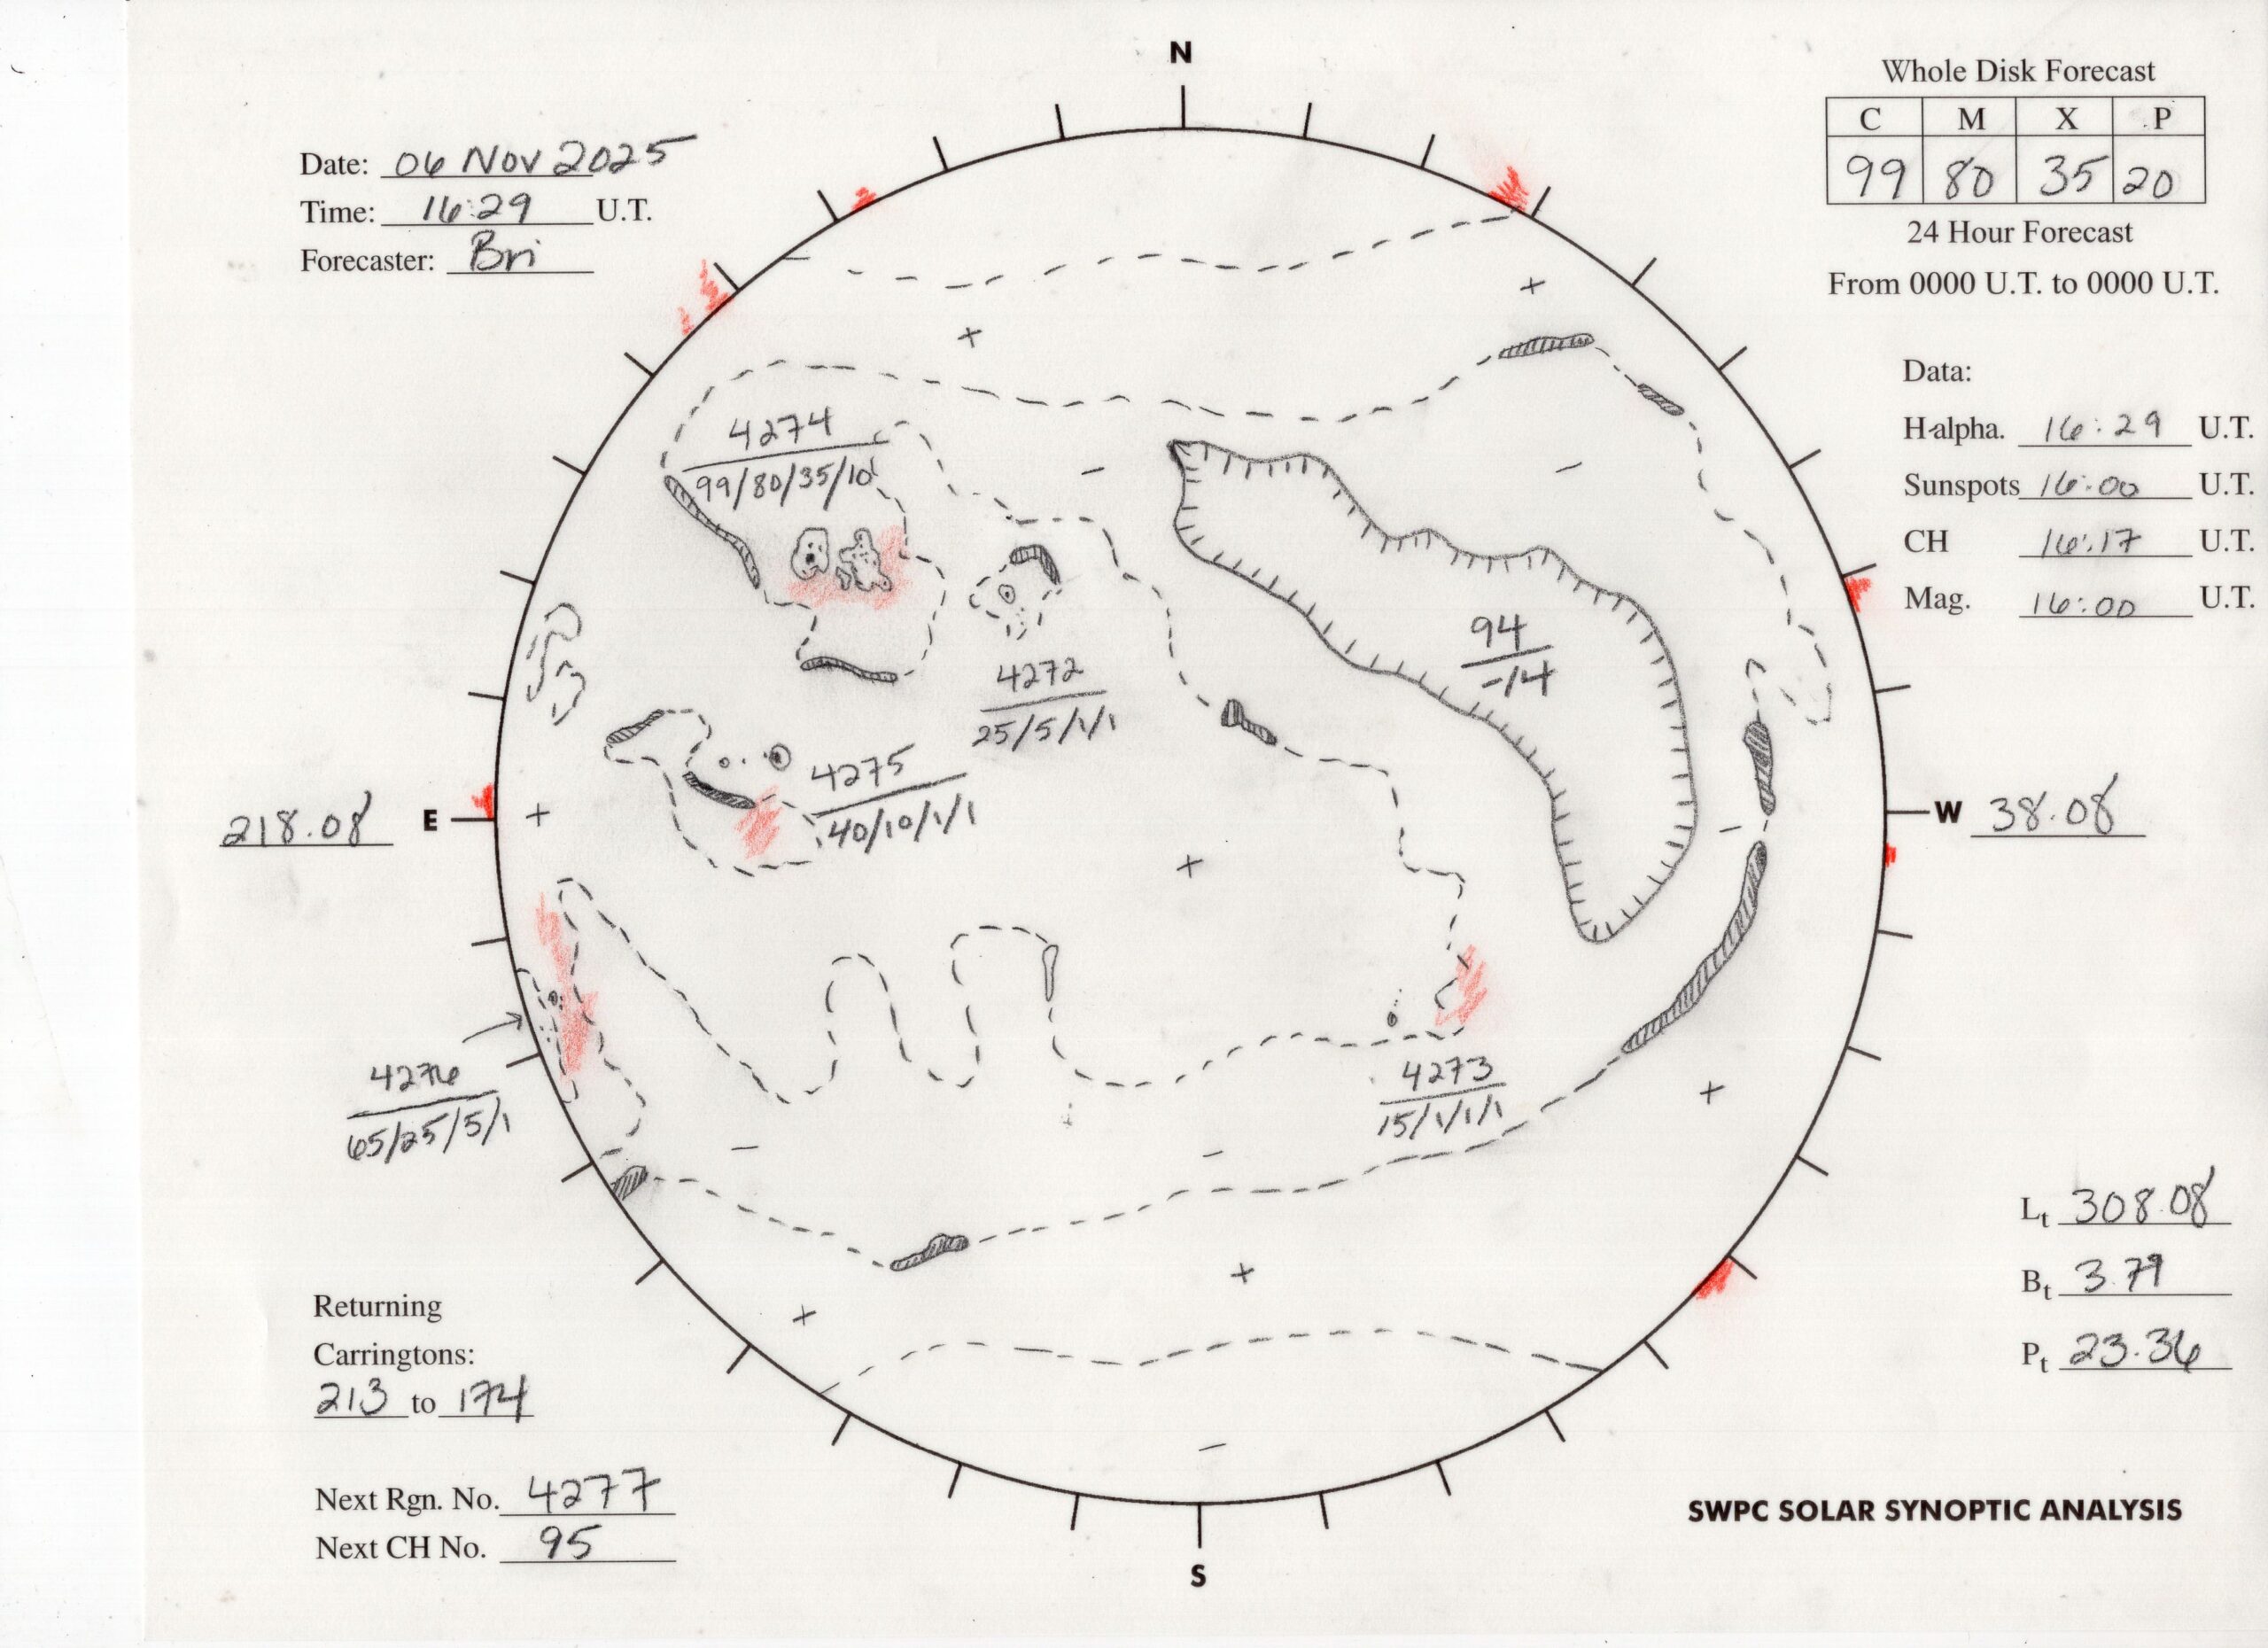 N
Date: 06 Nov 2025
Time: 16:29 U.T.
Forecaster: Bri
Whole Disk Forecast
C M X P
99 80 35 20
24 Hour Forecast
From 0000 U.T. to 0000 U.T.
Data:
H-alpha. 16:29 U.T.
Sunspots 16:00 U.T.
CH 16:17 U.T.
Mag. 16:00 U.T.
4274
99/80/35/10
94
-/4
4272
25/5/1/1
4275
40/10/1/1
218.08 E
W 38.08
4276
65/25/5/1
4273
15/1/1/1
Lt 308.08
Bt 3.79
Pt 23.36
Returning
Carringtons:
213 to 174
Next Rgn. No. 4277
Next CH No. 95
SWPC SOLAR SYNOPTIC ANALYSIS
S